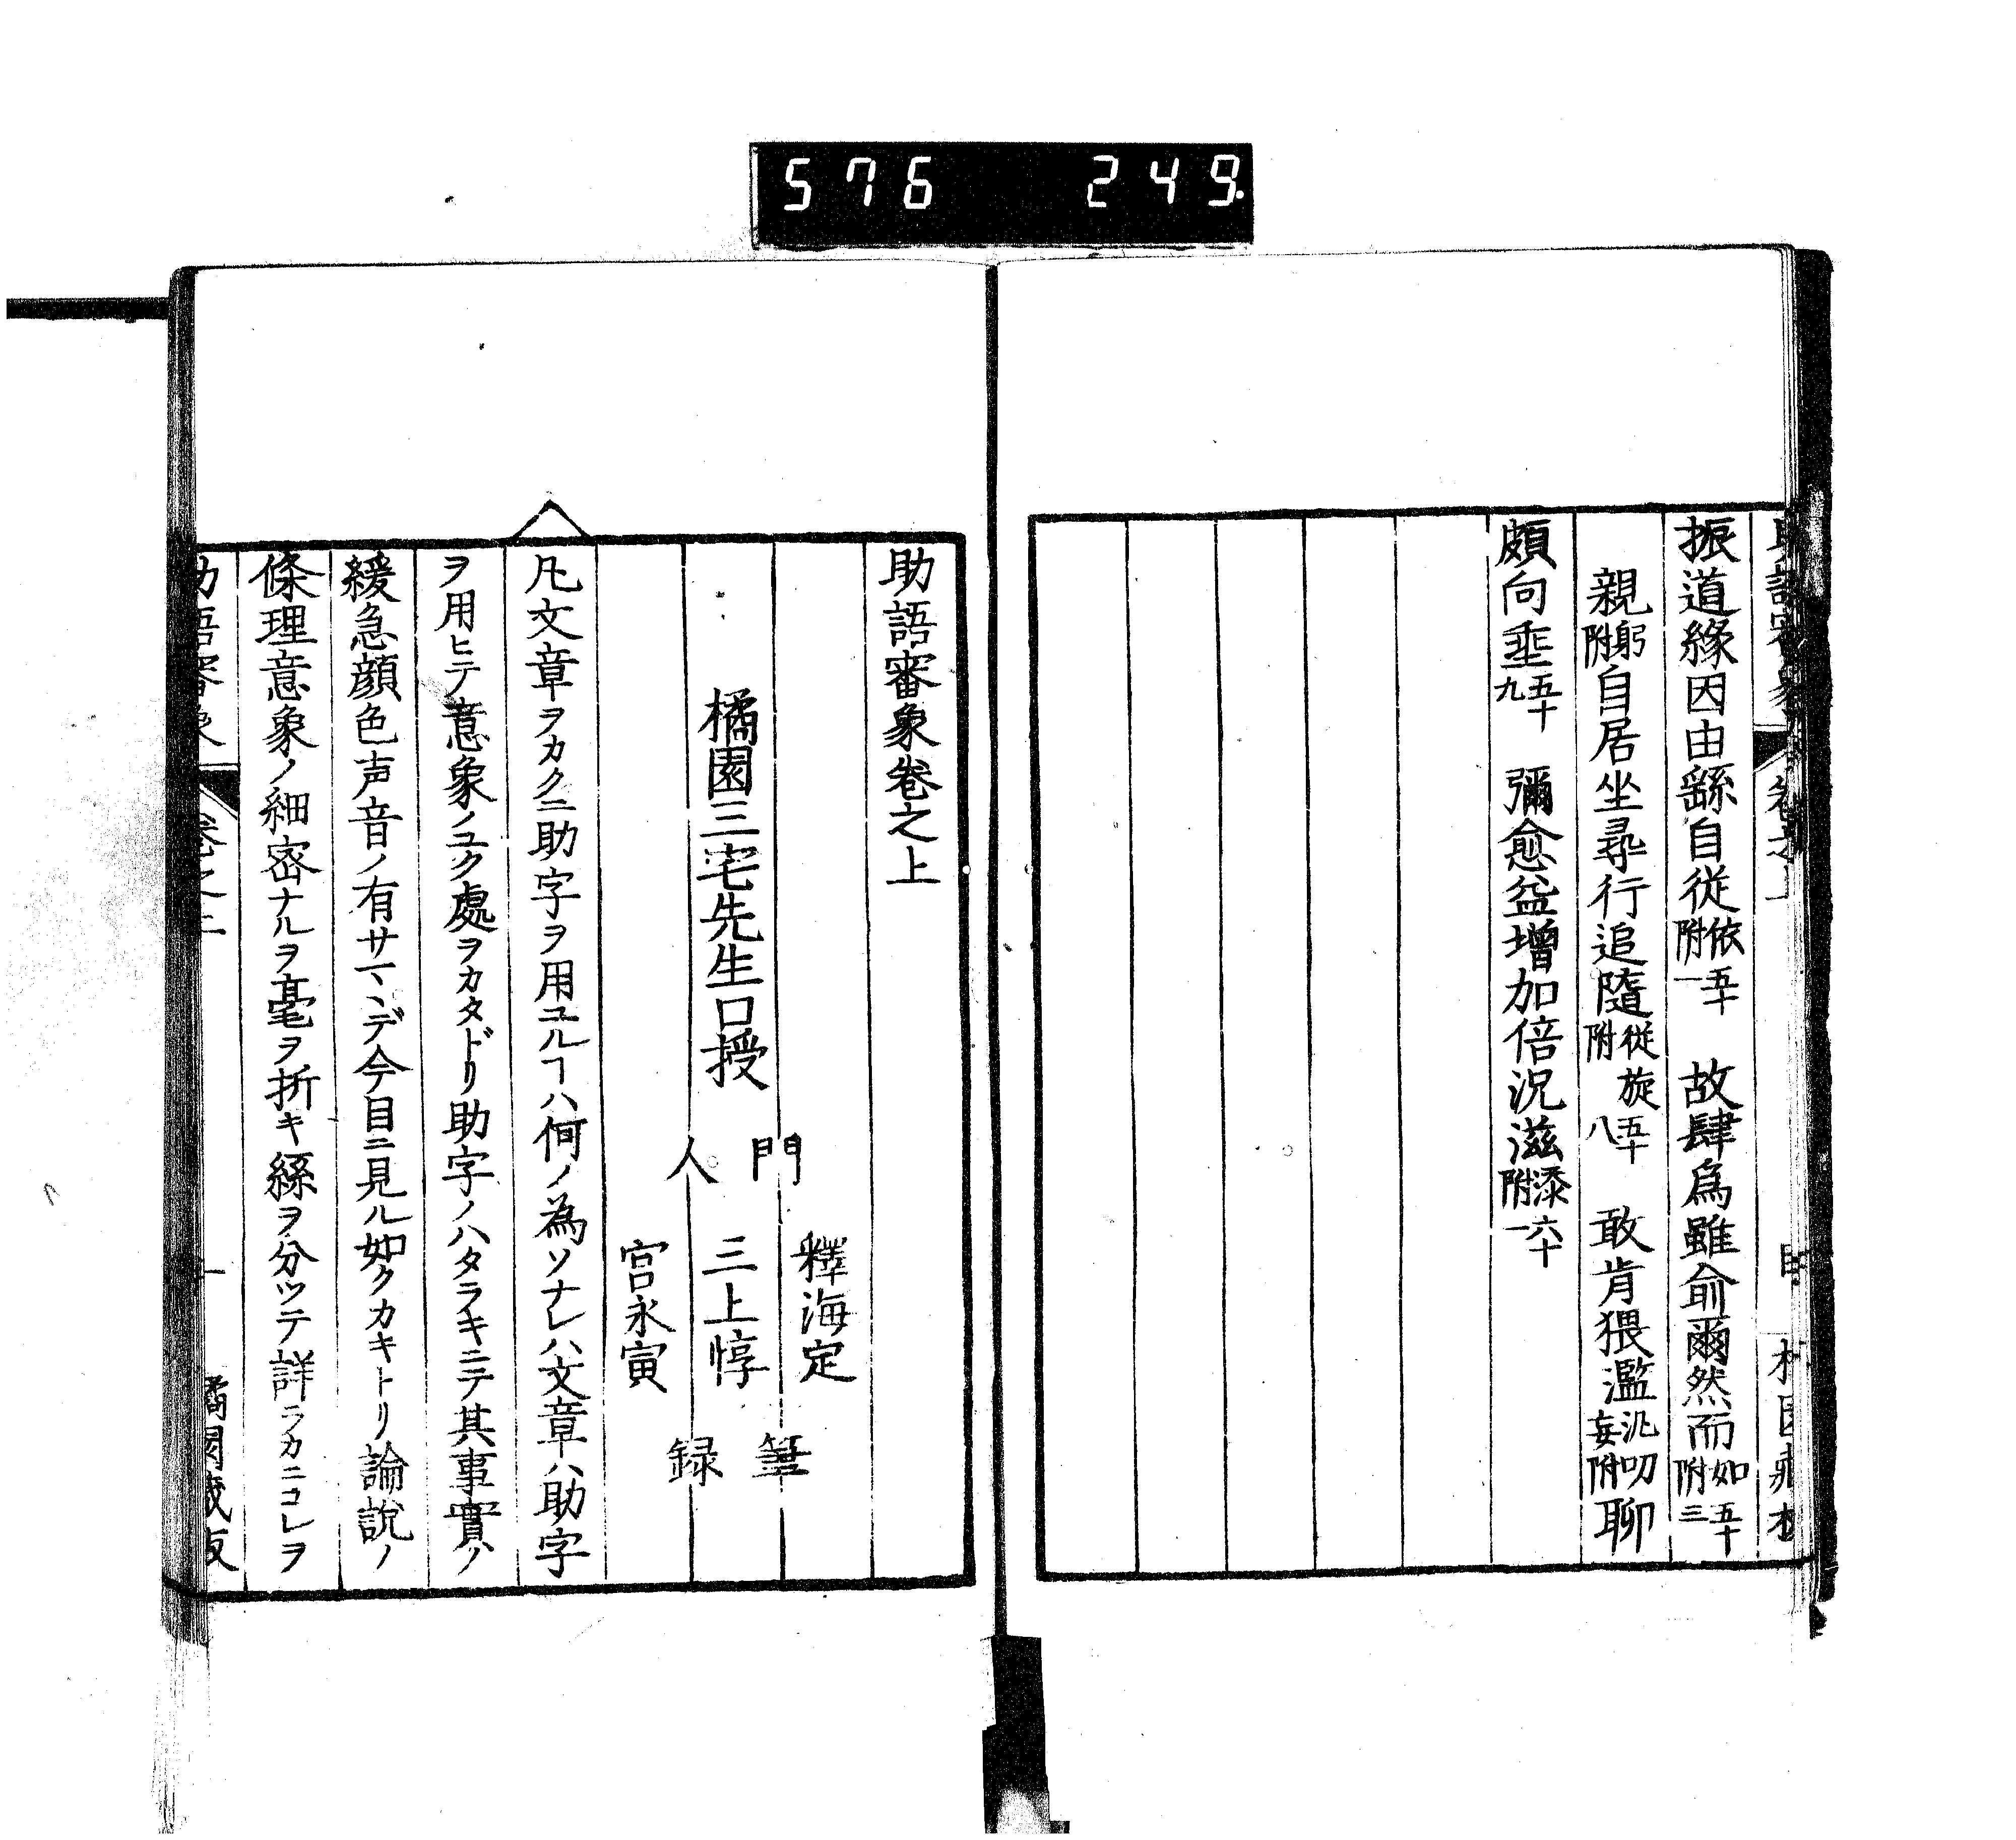 576 249
振道緣因由繇自從依附五十一 故肆爲雖俞爾然而如附五十三
親躬附自居坐尋行追隨從附旋五十八 敢肯猥濫汎叨妄附聊
頗向垂五十九 彌愈益增加倍況滋添附六十一
助語審象卷之上
橘園三宅先生口授
門人
釋海定
三上惇
宮永寅
筆録
凡文章ヲカクニ助字ヲ用ユルヿハ何ノ為ソナレハ文章ハ助字
ヲ用ヒテ意象ノユク處ヲカタドリ助字ノハタラキニテ其事實ノ
緩急顔色声音ノ有サマヽデ今目ニ見ル如クカキトリ論說ノ
條理意象ノ細密ナルヲ毫ヲ折キ絲ヲ分ツテ詳ラカニコレヲ
助語審象 卷之上 一 橘園藏板